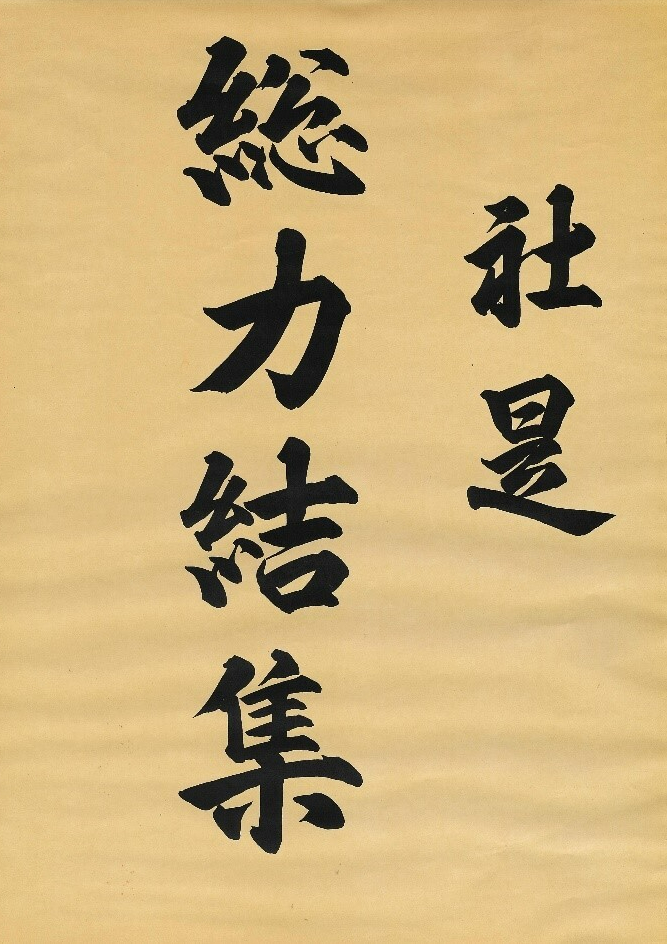 社是
総力結集